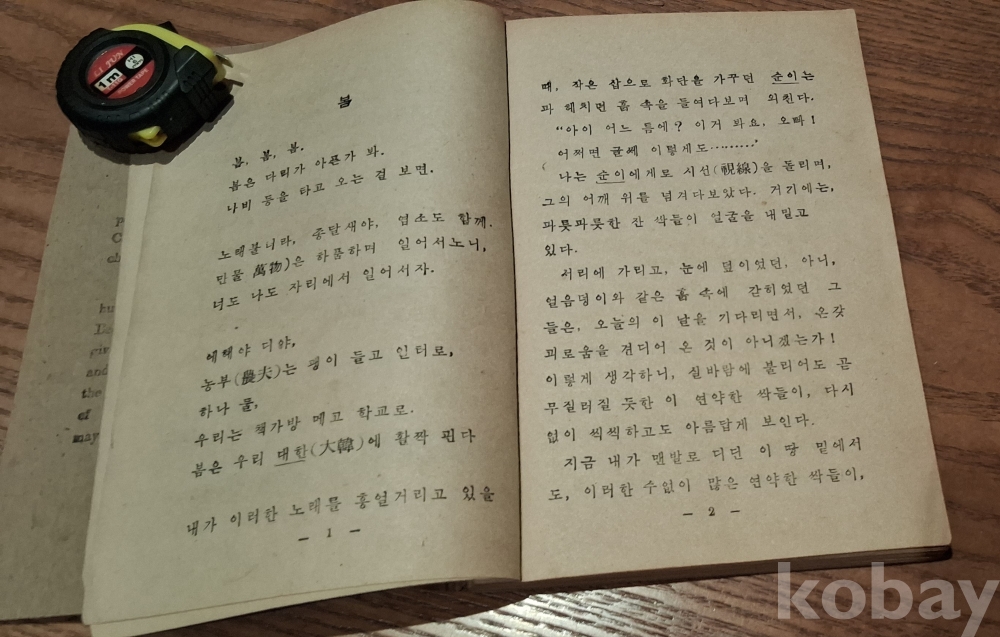 봄
봄, 봄, 봄.
봄은 다리가 아픈가 봐.
나비 등을 타고 오는 걸 보면.
노래불니라, 종달새야, 염소도 함께.
만물 萬物)은 하품하며 일어서노니,
너도 나도 자리에서 일어서자.
에헤야 디야,
농부(農夫)는 괭이 들고 일터로,
하나 둘,
우리는 책가방 메고 학교로.
봄은 우리 대한(大韓)에 활짝 핀다
내가 이러한 노래를 흥얼거리고 있을
— 1 —
때, 작은 삽으로 화단을 가꾸던 순이는
파 헤치먼 흙 속을 들여다보며 외친다.
"아이 어느 틈에? 이거 봐요, 오빠!
어쩌면 글쎄 이렇게도………
나는 순이에게로 시선(視線)을 돌리며,
그의 어깨 위를 넘겨다보았다. 거기에는,
파릇파릇한 잔 싹들이 얼굴을 내밀고
있다.
서리에 가리고, 눈에 덮이었던, 아니,
얼음덩이와 같은 흙 속에 갇히었던 그
들은, 오늘의 이 날을 기다리면서, 온갖
괴로움을 견디어 온 것이 아니겠는가!
이렇게 생각하니, 실바람에 불리어도 곧
무질러질 듯한 이 연약한 싹들이, 다시
없이 씩씩하고도 아름답게 보인다.
지금 내가 맨발로 디딘 이 땅 밑에서
도, 이러한 수없이 많은 연약한 싹들이,
— 2 —
and
the
of
may
1m
kobay